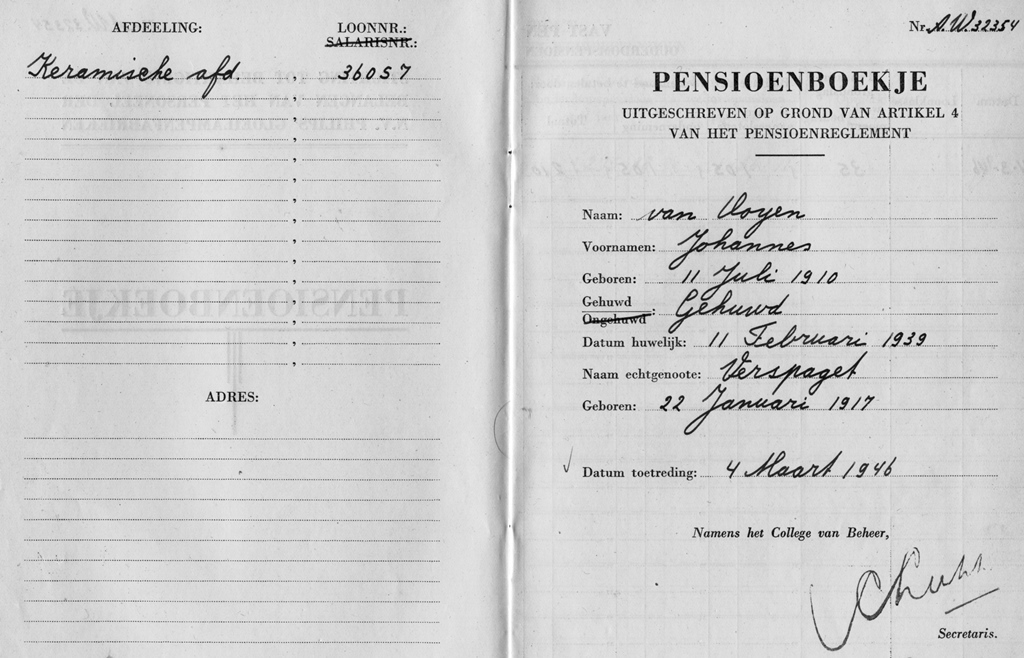 AFDEELING: LOONNR.:
SALARISNR.:
Keramische afd. , 36057
ADRES:
Nr. A.W. 32354
PENSIOENBOEKJE
UITGESCHREVEN OP GROND VAN ARTIKEL 4
VAN HET PENSIOENREGLEMENT
Naam: van
Voornamen: Johannes
Geboren: 11 Juli 1910
Gehuwd
Ongehuwd : Gehuwd
Datum huwelijk: 11 Februari 1939
Naam echtgenoote: Verspaget
Geboren: 22 Januari 1917
Datum toetreding: 4 Maart 1946
Namens het College van Beheer,
Secretaris.